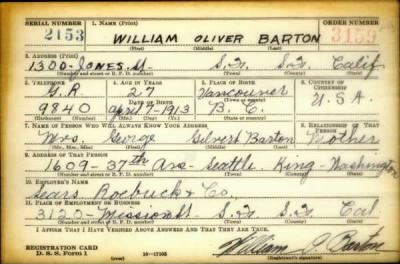 SERIAL NUMBER 1. NAME (Print) ORDER NUMBER
2153 WILLIAM OLIVER BARTON 3159
(First) (Middle) (Last)
2. ADDRESS (Print)
1300-JONES St. S.F. S.F. Calif
(Number and street or R. F. D. number) (Town) (County) (State)
3. TELEPHONE 4. AGE IN YEARS 5. PLACE OF BIRTH 6. COUNTRY OF CITIZENSHIP
G.R 27 Vancouver
DATE OF BIRTH U.S.A.
9840 April 7-1913 B.C.
(Exchange) (Number) (Mo.) (Day) (Yr.) (State or country)
7. NAME OF PERSON WHO WILL ALWAYS KNOW YOUR ADDRESS 8. RELATIONSHIP OF THAT PERSON
Mrs. George Gilbert Barton Mother
(Mr., Mrs., Miss) (First) (Middle) (Last)
9. ADDRESS OF THAT PERSON
1609-37th Ave- Seattle. King-Washington
(Number and street or R. F. D. number) (Town) (County) (State)
10. EMPLOYER'S NAME
Sears Roebuck & Co.
11. PLACE OF EMPLOYMENT OR BUSINESS
3120-Mission St. S.F. S.F. Cal
(Number and street or R. F. D. number) (Town) (County) (State)
I AFFIRM THAT I HAVE VERIFIED ABOVE ANSWERS AND THAT THEY ARE TRUE.
REGISTRATION CARD
D. S. S. Form 1 16-17105 William O Barton
(Registrant's signature)